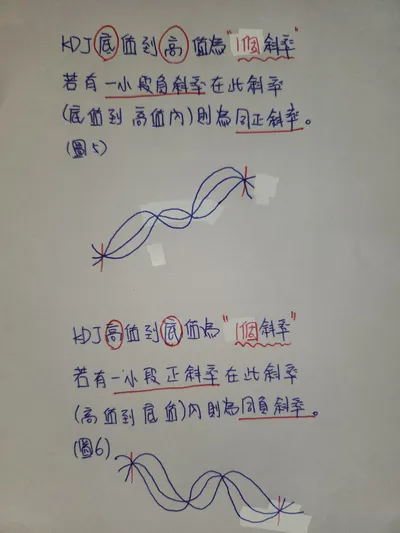 KDJ底值到高值為"1個斜率"
若有一小段負斜率在此斜率
(底值到高值內)則為同正斜率。
(圖5)
KDJ高值到底值為"1個斜率"
若有一小段正斜率在此斜率
(高值到底值)內則為同負斜率。
(圖6)